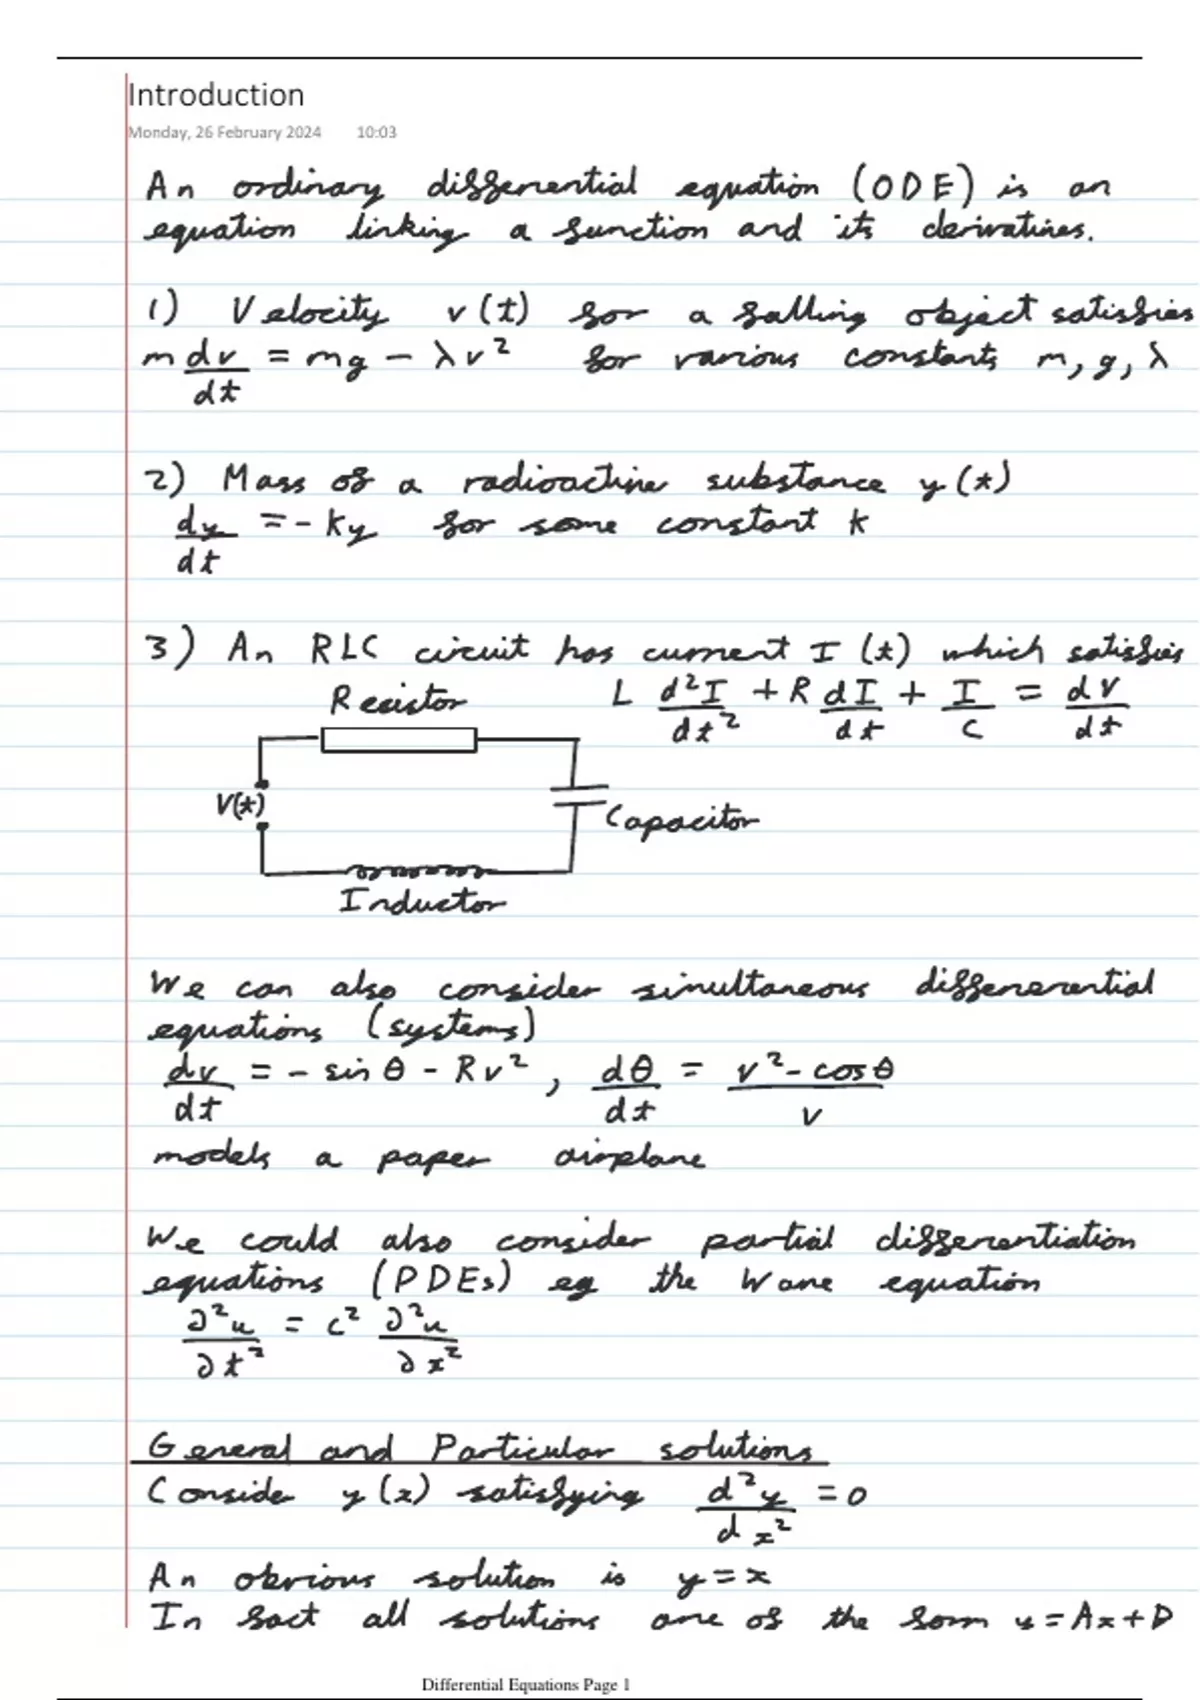 Introduction
Monday, 26 February 2024 10:03
An ordinary differential equation (ODE) is an
equation linking a function and its derivatives.
1) Velocity v(t) for a falling object satisfies
m dv/dt = mg - λv² for various constants m, g, λ
2) Mass of a radioactive substance y(t)
dy/dt = - ky for some constant k
3) An RLC circuit has current I(t) which satisfies
Resistor L d²I/dt² + R dI/dt + I/C = dV/dt
V(t)
Capacitor
Inductor
We can also consider simultaneous differenerential
equations (systems)
dv/dt = - sin θ - Rv², dθ/dt = (v² - cos θ)/v
models a paper airplane
We could also consider partial differentiation
equations (PDEs) eg the Wave equation
∂²u/∂t² = c² ∂²u/∂x²
General and Particular solutions
Conside y(x) satisfying d²y/dx² = 0
An obvious solution is y = x
In fact all solutions are of the form y = Ax + D
Differential Equations Page 1